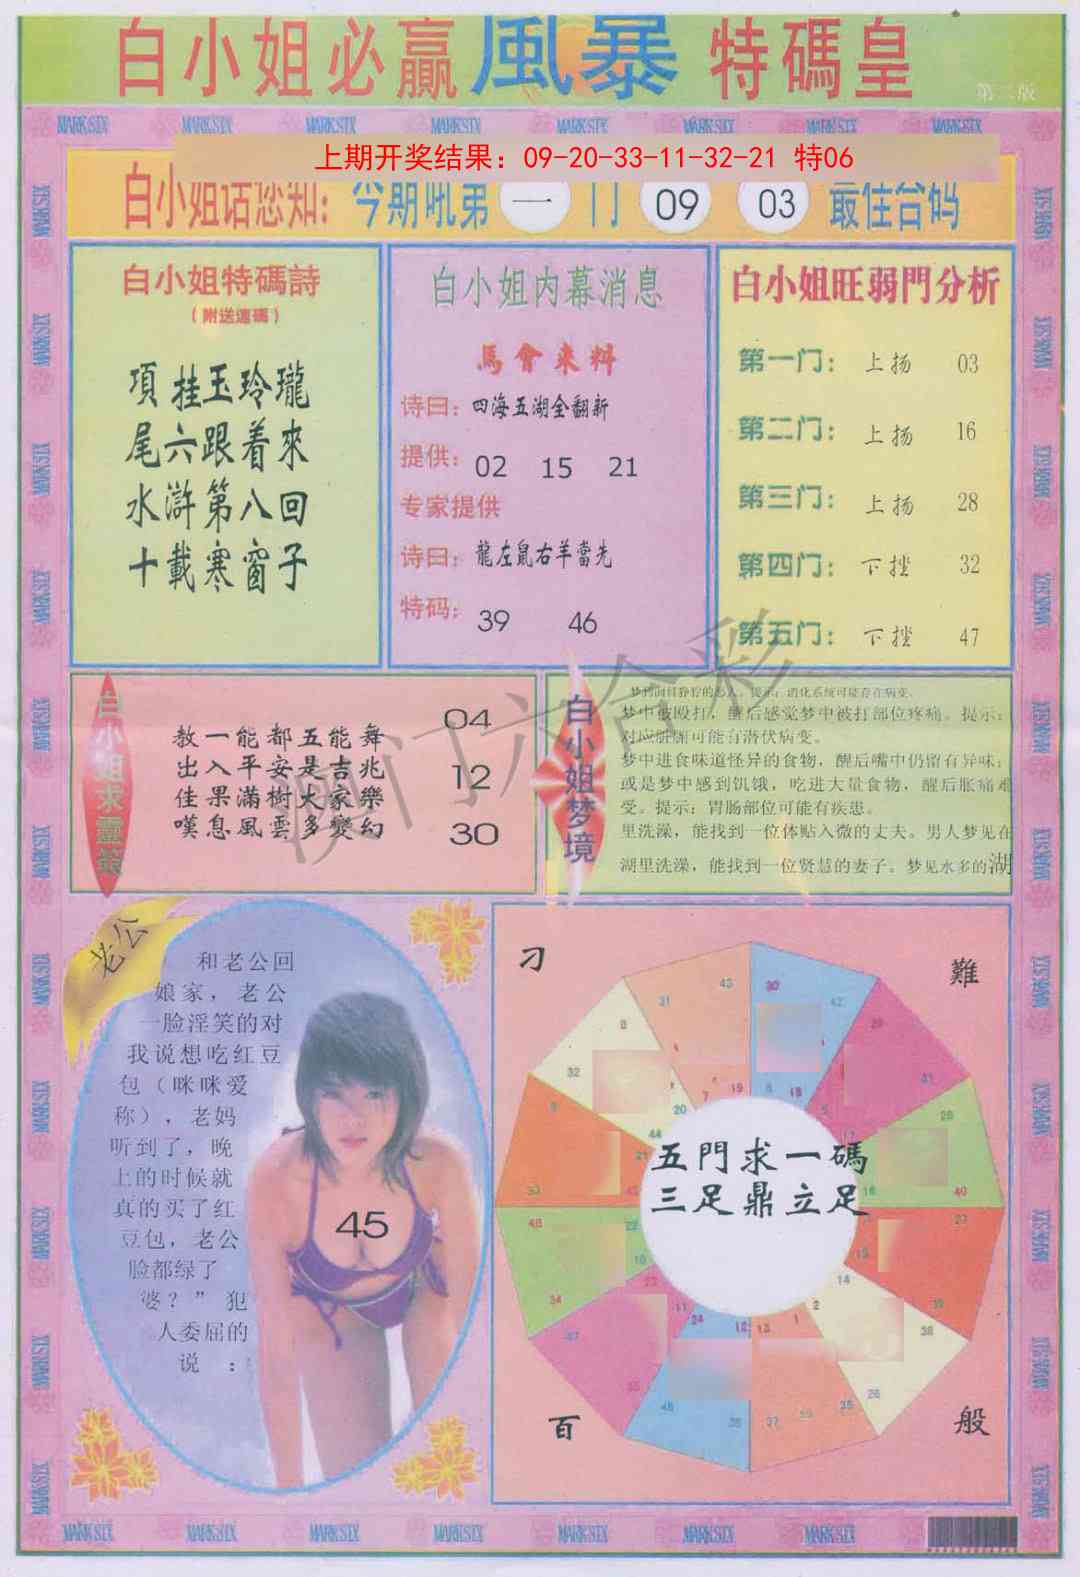 白小姐必贏風暴特碼皇
第二版
MARK SIX MARK SIX MARK SIX MARK SIX MARK SIX MARK SIX MARK SIX MARK SIX
上期开奖结果：09-20-33-11-32-21 特06
白小姐话您知：今期吼第一门 09 03 最佳合码
白小姐特碼詩
（附送連碼）
項挂玉玲瓏
尾六跟着來
水滸第八回
十載寒窗子
白小姐内幕消息
馬會来料
诗曰：四海五湖全翻新
提供：02 15 21
专家提供
诗曰：龍左鼠右羊當先
特码：39 46
白小姐旺弱門分析
第一门：上扬 03
第二门：上扬 16
第三门：上扬 28
第四门：下挫 32
第五门：下挫 47
白小姐求靈簽
教一能都五能舞
出入平安是吉兆
佳果滿樹大家樂
嘆息風雲多變幻
04
12
30
白小姐梦境
梦中被殴打，醒后感觉梦中被打部位疼痛。提示：
对应脏腑可能有潜伏病变。
梦中进食味道怪异的食物，醒后嘴中仍留有异味；
或是梦中感到饥饿，吃进大量食物，醒后胀痛难
受。提示：胃肠部位可能有疾患。
里洗澡，能找到一位体贴入微的丈夫。男人梦见在
湖里洗澡，能找到一位贤慧的妻子。梦见水多的湖
澳门六合彩
老公
和老公回
娘家，老公
一脸淫笑的对
我说想吃红豆
包（咪咪爱
称），老妈
听到了，晚
上的时候就
真的买了红
豆包，老公
脸都绿了
婆？”犯
人委屈的
说：
45
刁
難
五門求一碼
三足鼎立足
百
般
MARK SIX MARK SIX MARK SIX MARK SIX MARK SIX MARK SIX MARK SIX